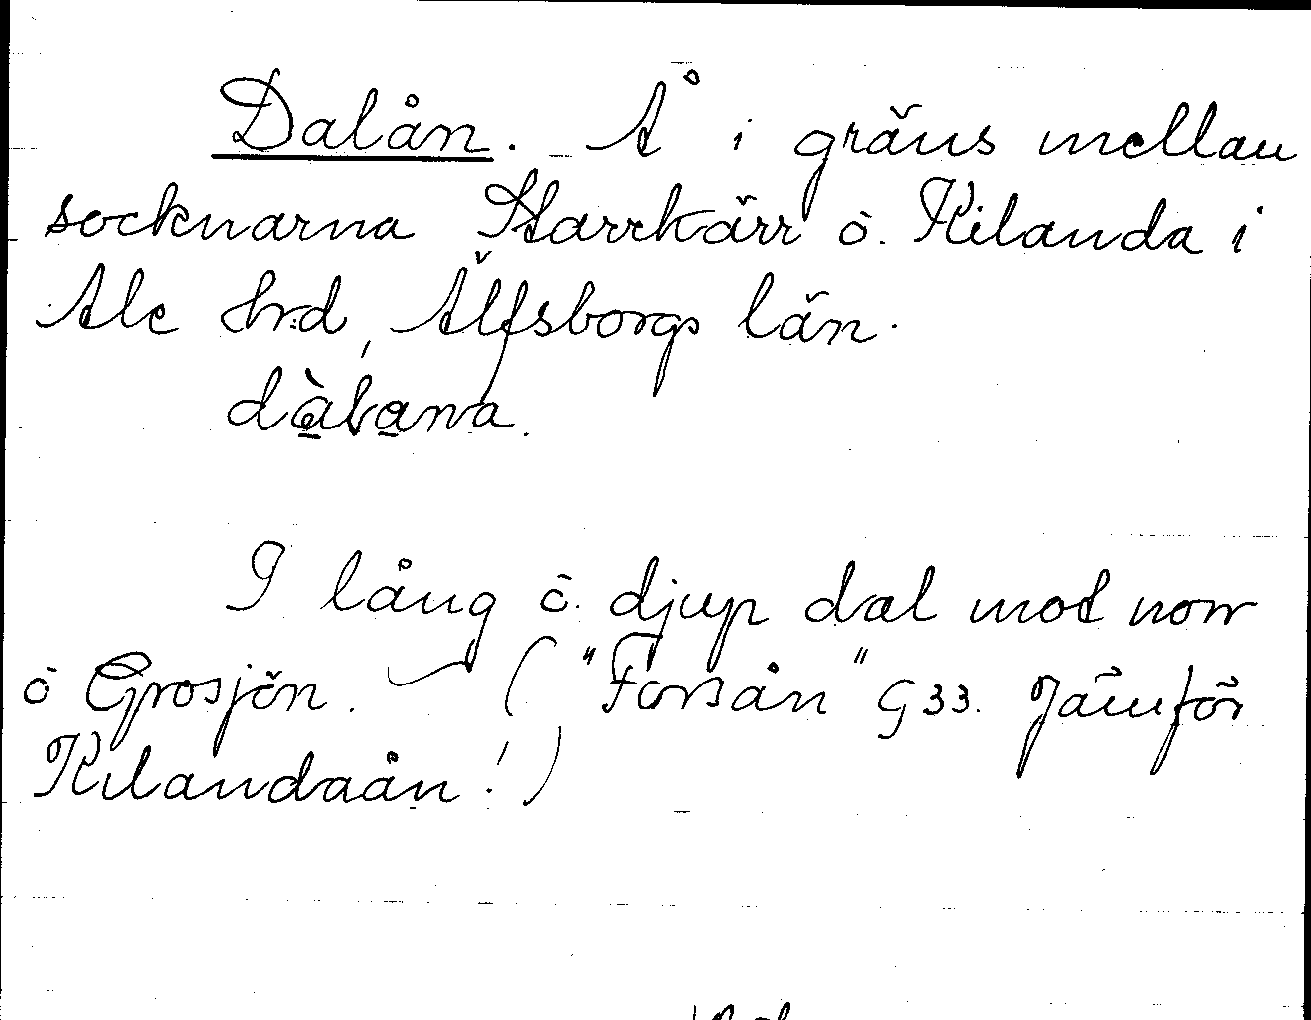 Dalån. Å i gräns mellan
socknarna Starrkärr o. Kilanda i
Ale hrd, Älfsborgs län.
dàlana.
I lång o. djup dal mot norr
o Grosjön. ("Forsån" G33. Jämför
Kilandaån!)